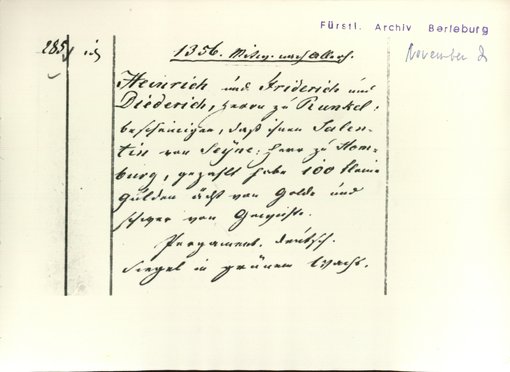 Fürstl. Archiv Berleburg
November 2
285
1356. Mitw. nach Allerh.
Heinrich und Friderich und
Diederich, Herrn zu Runkel:
bescheinigen, daß ihnen Salen-
tin von Seyne, Herr zu Hom-
burg, gezahlt habe 100 kleine
Gülden ächt von Golde und
schwer von Gewichte.
Pergament. deutsch.
Siegel in grünem Wachs.